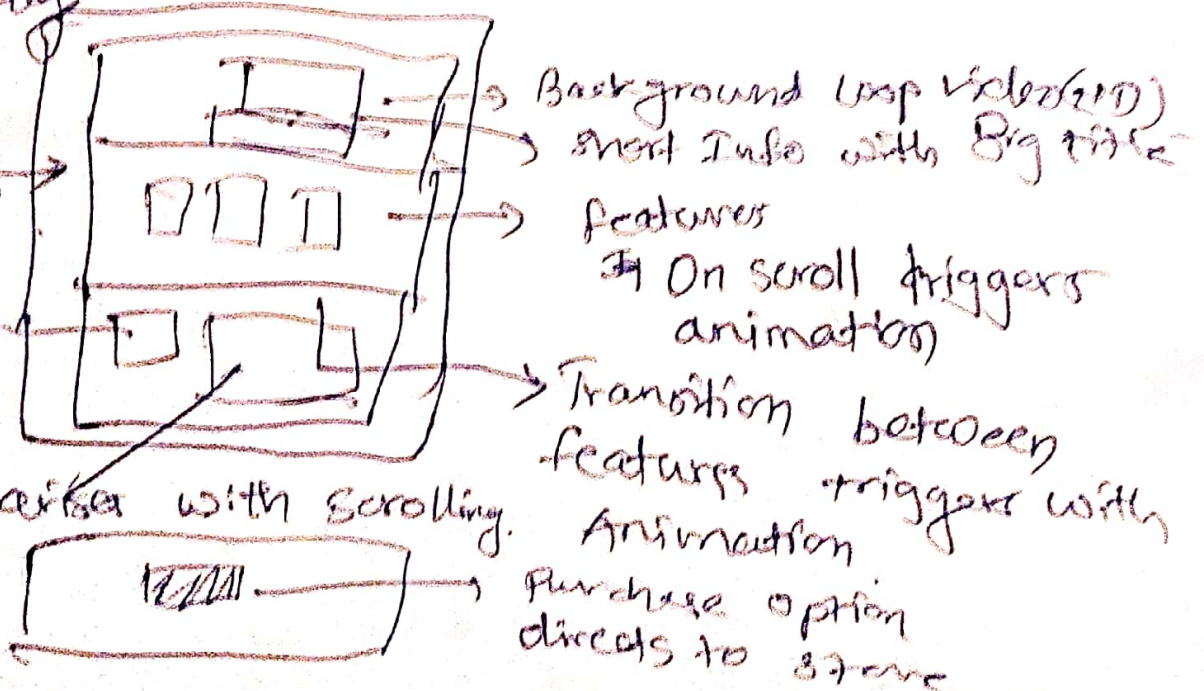 Background Loop Video
short Info with Big title
features
On scroll triggers
animation
Transition between
features triggers with
Animation
with scrolling.
Purchase option
directs to store